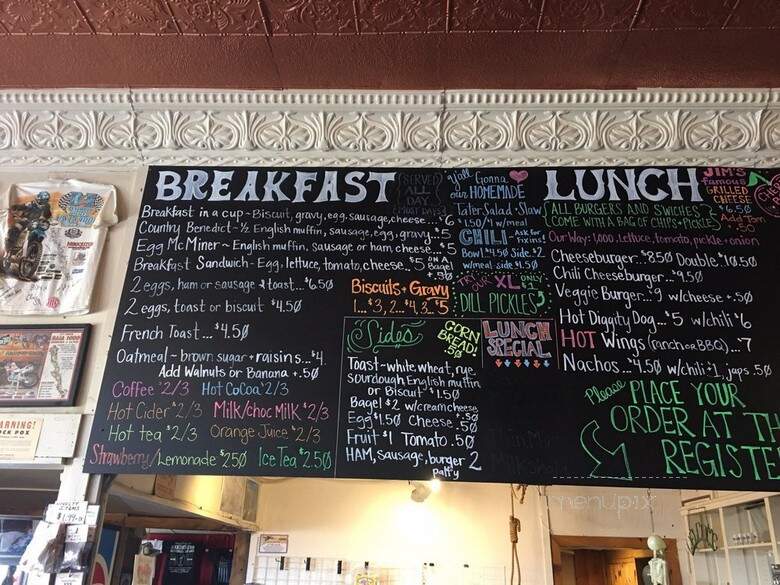 BREAKFAST
SERVED
ALL
DAY
Breakfast in a cup ~ Biscuit, gravy, egg, sausage, cheese...$5
Country Benedict - ½ English muffin, sausage, egg, gravy..$5
Egg Mc Miner ~ English muffin, sausage or ham, cheese..$5
Breakfast Sandwich - Egg, lettuce, tomato, cheese..$5
ON A
Bagel
.50
2 eggs, ham or sausage & toast...$6.50
2 eggs, toast or biscuit $4.50
French Toast...$4.50
Oatmeal ~ brown sugar + raisins...$4.
Add Walnuts or Banana + .50
Coffee $2/3 Hot CoCoa $2/3
Hot Cider $2/3 Milk/choc Milk $2/3
Hot tea $2/3 Orange Juice $2/3
Strawberry/Lemonade $2.50 Ice Tea $2.50
Biscuits + Gravy
1...$3, 2...$4, 3..$5
Sides
CORN
BREAD!
.50
Toast - white wheat, rye,
sourdough English muffin
or Biscuit $1.50
Bagel $2 w/creamcheese .50
Egg $1.50 Cheese .50
Fruit $1 Tomato .50
HAM, Sausage, burger 2
patty
y'all Gonna
our HOMEMADE
Tater Salad - Slaw
1.50/$1 w/meal
CHILI Ask for
Fixins!
Bowl $4.50 Side $2
w/meal side $1.50
TRY OUR XL ONLY
DILL PICKLES
LUNCH
SPECIAL
LUNCH
JIM'S
famous
GRILLED
CHEESE
$6.50
Add Ham
.50
ALL BURGERS AND SWICHES
COME WITH A BAG OF CHIPS + PICKLE
Our Way: 1,000, lettuce, tomato, pickle + onion
Cheeseburger..$8.50 Double $10.50
Chili Cheeseburger...$9.50
Veggie Burger...$9 w/cheese + .50
Hot Diggity Dog...$5 w/chili $6
HOT Wings (ranch or BBQ)...$7
Nachos...$4.50 w/chili + 1, japs .50
Please PLACE YOUR
ORDER AT TH
REGISTE
BAJA 1000
ARNING!
$1.99
menupix